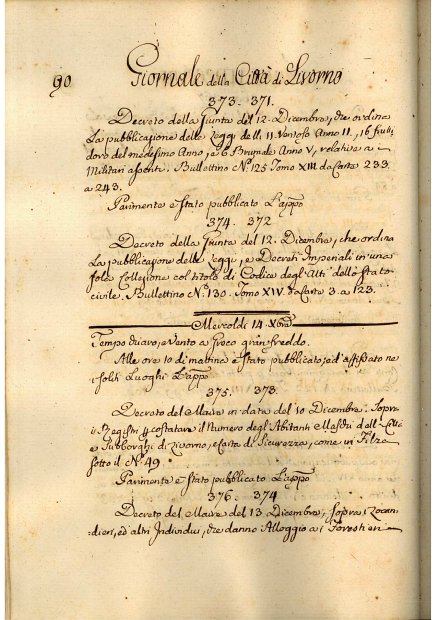 90
Giornale della Città di Livorno
373. 371.
Decreto della Giunta del 12. Dicembre, che ordina
La pubblicazione delle Leggi delli 11. Ventoso Anno II, 16 fruti
doro del medesimo Anno, e 6 Brumale Anno V, relative a
Militari assenti. Bullettino N.º 125 Tomo XIII da Carte 233
a 243.
Parimente è stato pubblicato L'app.º
374. 372
Decreto della Giunta del 12. Dicembre, che ordina
La pubblicazione delle Leggi, e Decreti Imperiali in una
sola Collezione col titolo di Codice degl'Atti dello stato
civile. Bullettino N.º 130. Tomo XIV. da Carte 3. a 123.
Mercoldì 14 Xbre
Tempo chiaro, e Vento a Greco gran freddo.
Alle ore 10 di mattina è stato pubblicato, ad affissato ne
i soliti Luoghi L'app.º
375. 373.
Decreto del Maire in data del 10 Dicembre. Sopra
i Registri p costatare il Numero degl'Abitanti Maschi dell Città
e Subborghi di Livorno, e Carta di Sicurezza, come in Filza
sotto il N.º 49.
Parimente è stato pubblicato L'app.º
376. 374
Decreto del Maire del 13 Dicembre, sopra i Locan-
-dieri, ed altri Individui, che danno Alloggio a i Forestieri